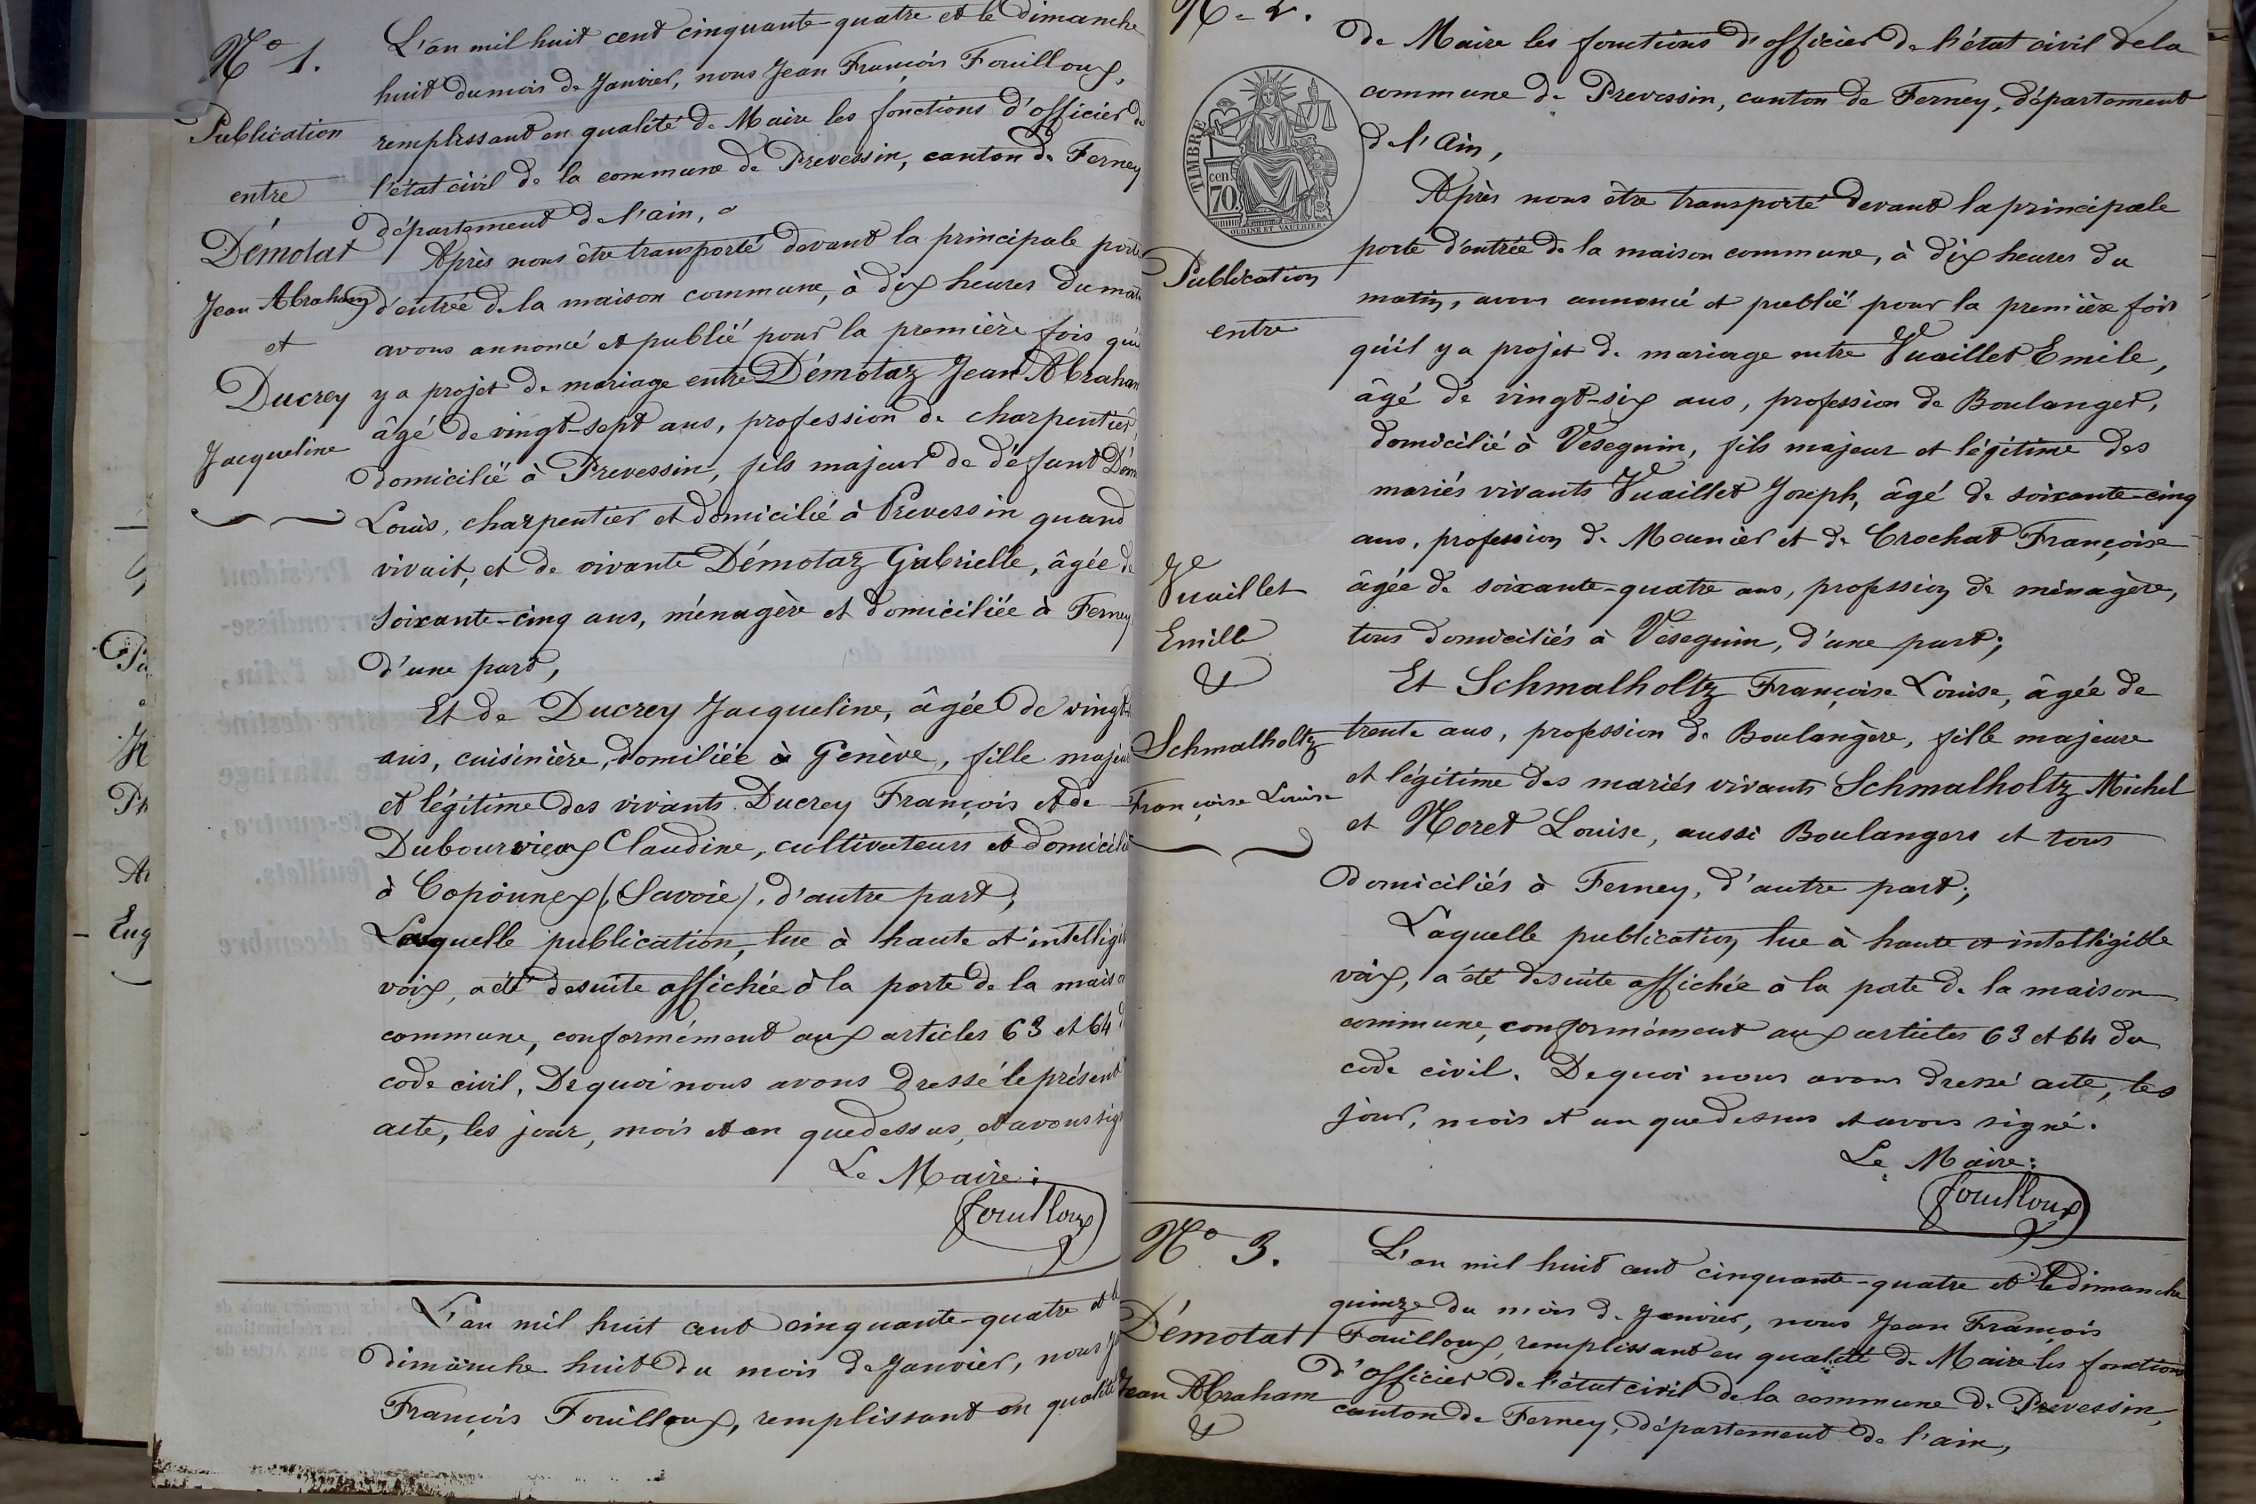 Nº 1.
Publication
entre
Démotat
Jean Abraham
et
Ducrey
Jacqueline
L'an mil huit cent cinquante-quatre et le Dimanche
huit du mois de Janvier, nous Jean François Fouilloux,
remplissant en qualité de Maire les fonctions d'officier de
l'état civil de la commune de Prevessin, canton de Ferney
département de l'ain,
Après nous être transporté devant la principale porte
d'entrée de la maison commune, à dix heures du
avons annoncé et publié pour la première fois
y a projet de mariage entre Démotaz Jean Abraham
âgé de vingt-sept ans, profession de charpentier,
domicilié à Prevessin, fils majeur de défunt
Louis, charpentier et domicilié à Prevessin quand
vivait, et de vivante Démotaz Gabrielle, âgée de
soixante-cinq ans, ménagère et domiciliée à Ferney
d'une part,
Et de Ducrey Jacqueline, âgée de vingt-
ans, cuisinière, domiliée à Genève, fille
et légitime des vivants Ducrey François et de
Claudine, cultivateurs et
à Coponnex (Savoie), d'autre part;
Laquelle publication, lue à haute et
voix, a été desuite affichée à la porte de la
commune, conformément aux articles 63 et 64
code civil, De quoi nous avons dressé le présent
acte, les jour, mois et an que dessus, et avons
Le Maire:
Fouilloux
L'an mil huit cent cinquante-quatre et le
dimanche huit du mois de Janvier, nous
François Fouilloux, remplissant en qualité
Nº 2.
TIMBRE
70 cen.
OUDINE ET VAUTHIER
Publication
entre
Vuaillet
Emille
&
Schmalholtz
Françoise Louise
de Maire les fonctions d'officier de l'état civil de la
commune de Prevessin, canton de Ferney, département
de l'Ain,
Après nous être transporté devant la principale
porte d'entrée de la maison commune, à dix heures du
matin, avons annoncé et publié pour la première fois
qu'il y a projet de mariage entre Vuaillet Emile,
âgé de vingt-six ans, profession de Boulanger,
domicilié à Vesegnin, fils majeur et légitime des
mariés vivants Vuaillet Joseph, âgé de soixante-cinq
ans, profession de Meunier et de Crochat Françoise
âgée de soixante-quatre ans, profession de ménagère,
tous domiciliés à Vesegnin, d'une part;
Et Schmalholtz Françoise Louise, âgée de
trente ans, profession de Boulangère, fille majeure
et légitime des mariés vivants Schmalholtz Michel
et Moret Louise, aussi Boulangers et tous
domiciliés à Ferney, d'autre part;
Laquelle publication lue à haute et intelligible
voix, a été desuite affichée à la porte de la maison
commune, conformément aux articles 63 et 64 du
code civil. De quoi nous avons dressé acte, les
jour, mois et an que dessus et avons signé.
Le Maire:
Fouilloux
Nº 3.
Démotat
Jean Abraham
&
L'an mil huit cent cinquante-quatre et le dimanche
quinze du mois de Janvier, nous Jean François
Fouilloux, remplissant en qualité de Maire les fonctions
d'officier de l'état civil de la commune de Prevessin,
canton de Ferney, département de l'ain,